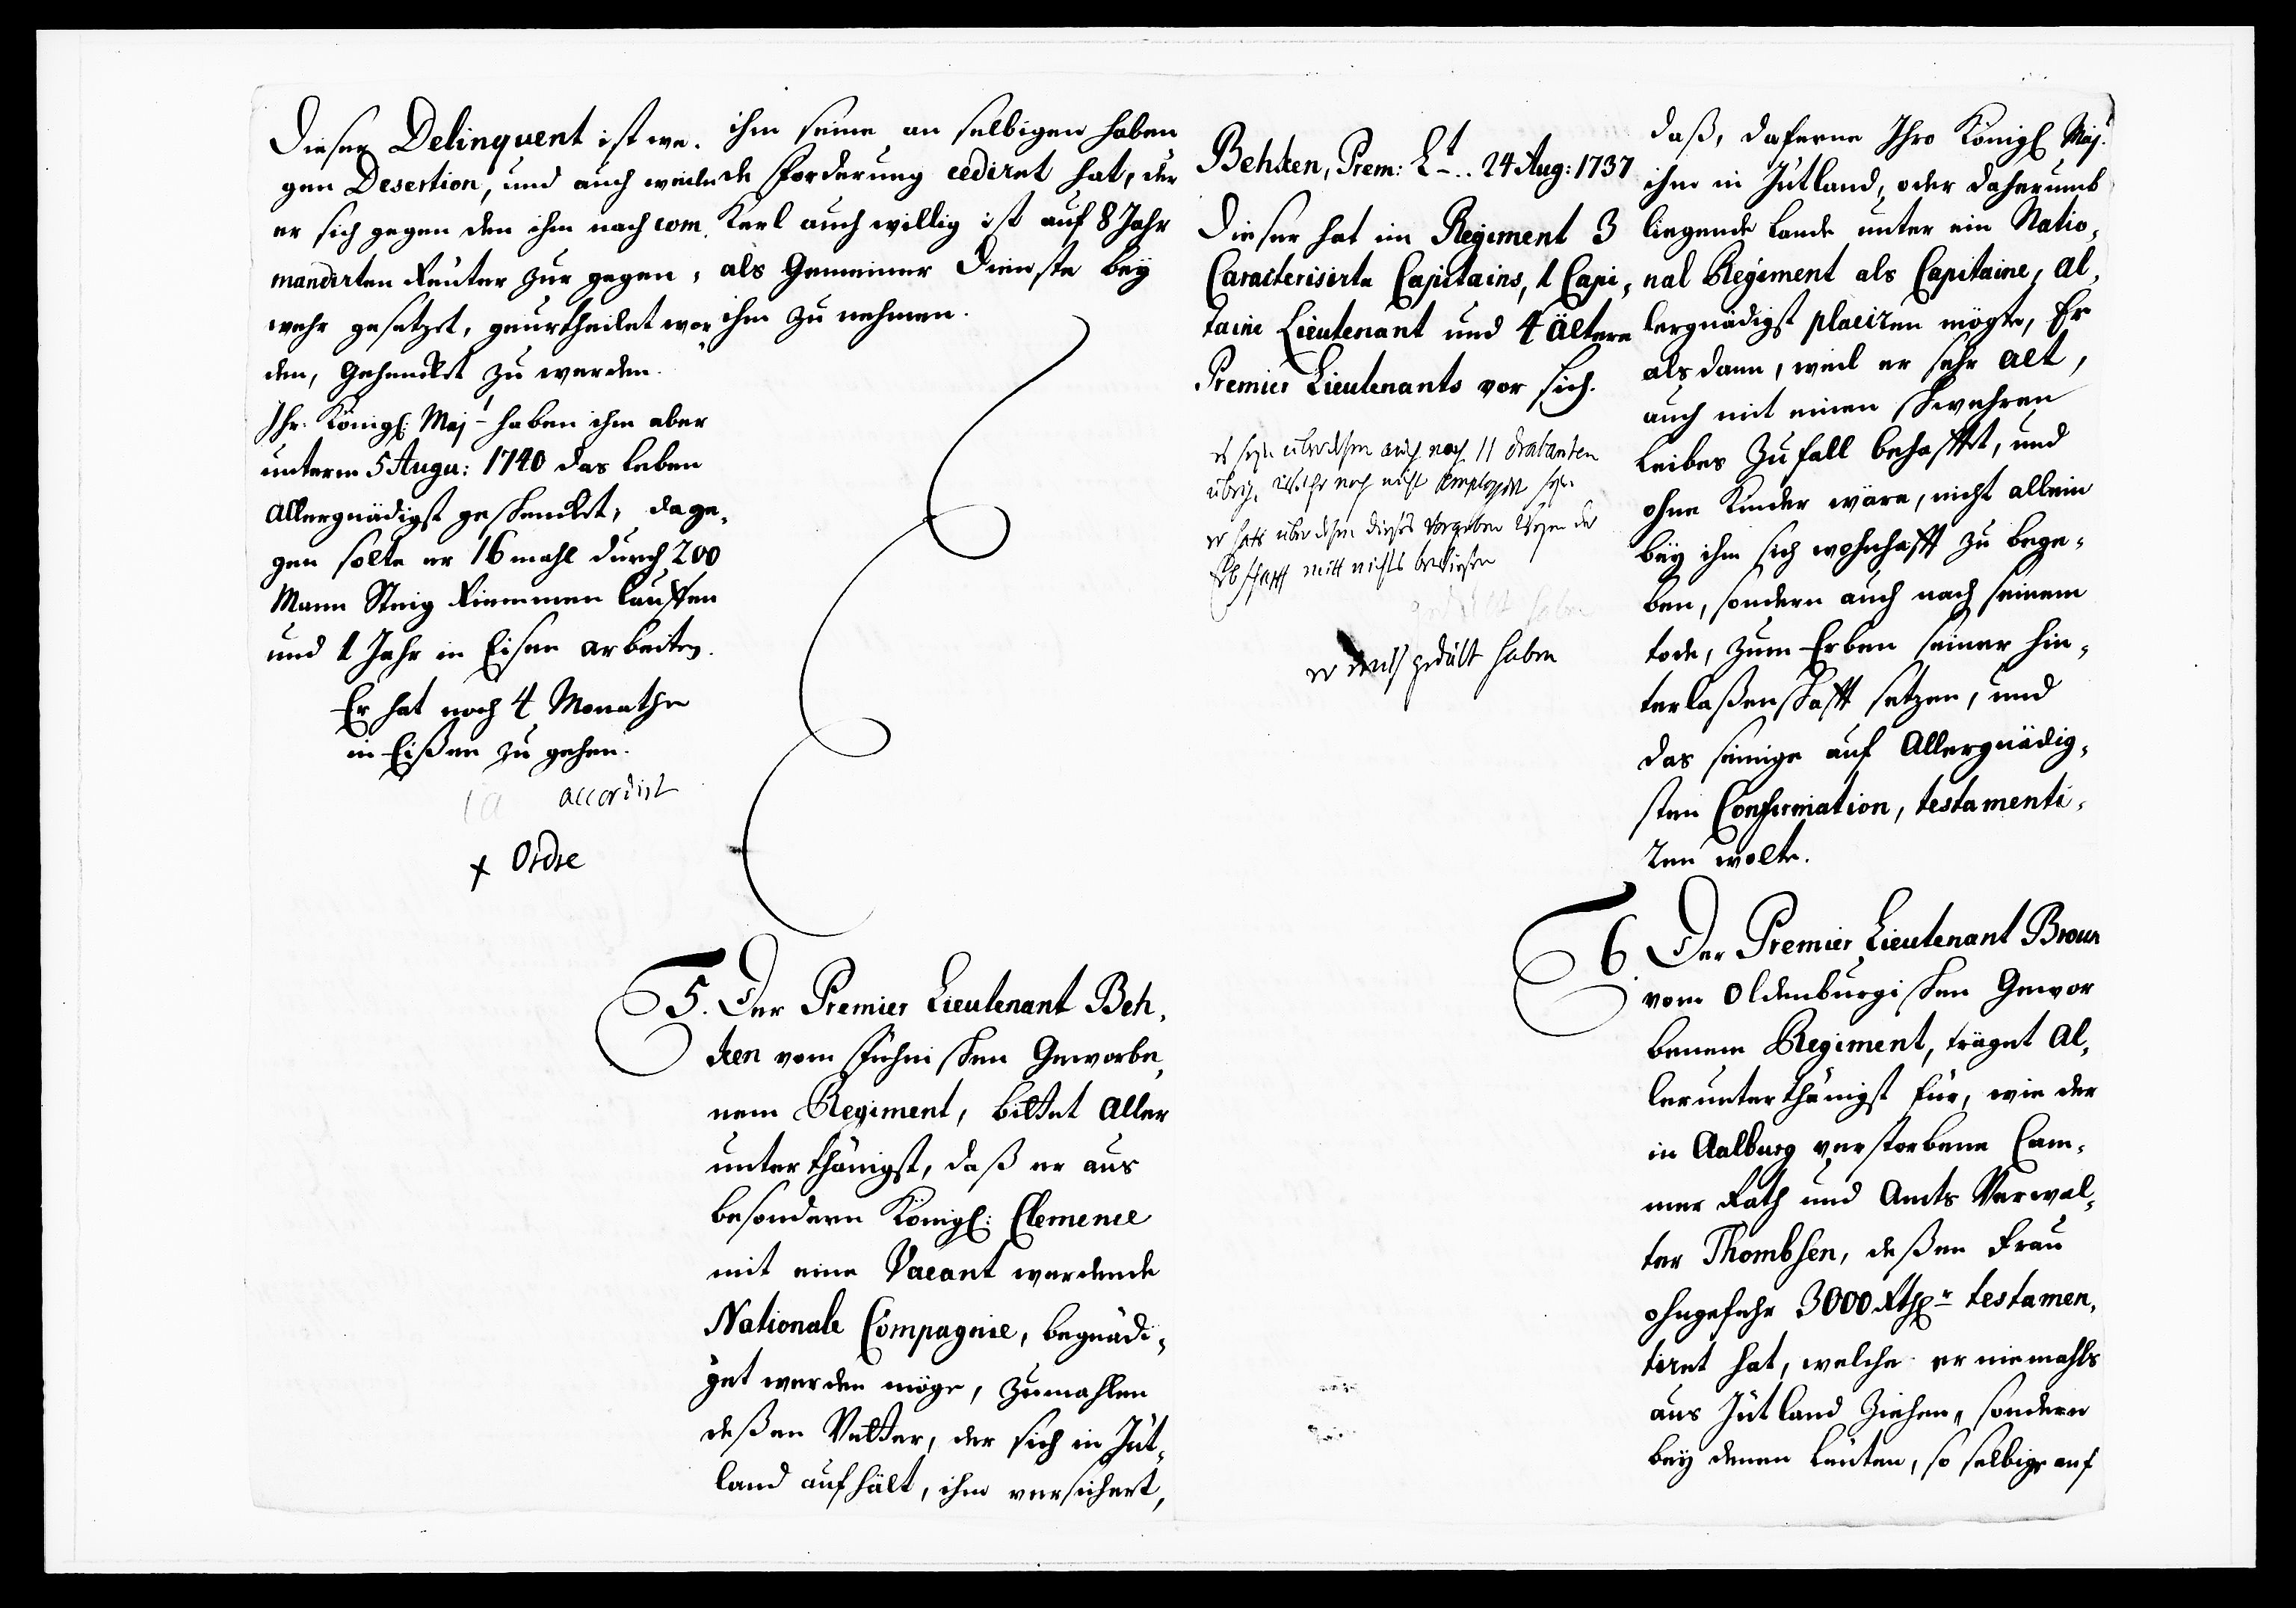 Dieser Delinquent ist we-
gen Desertion, und auch weilen
er sich gegen den ihm nach com-
mandirten Reuter zur gegen-
wehr gesetzet, geurtheilet wor-
den, Gehencket zu werden.
Ihr. Königl: Maj.t haben ihm aber
unterm 5 Augu: 1740 das leben
Allergnädigst geschencket; dage-
gen solte er 16 mahl durch 200
Mann Steig Riemmen lauffen
und 1 Jahr in Eisen arbeiten.
Er hat noch 4 Monathe
in Eißen zu gehen.
accordirt
x Ordre
ihm seine an selbigen haben
de Forderung cediret hat, der
Kerl auch willig ist auf 8 Jahr
als Gemeiner Dienste bey
ihm zu nehmen.
5. Der Premier Lieutenant Beh-
cken vom Fühnischen Geworbe-
nem Regiment, bittet Aller
unterthänigst, daß er aus
besondern Königl: Clemence
mit eine Vacant werdende
Nationale Compagnie, begnädi-
get werden möge, zumahlen
deßen Vetter, der sich in Jüt-
land aufhält, ihm versichert,
Behcken, Prem: Lt.. 24 Aug: 1737
Dieser hat im Regiment 3
Caracterisirte Capitains, 1 Capi-
taine Lieutenant und 4 Ältere
Premier Lieutenants vor sich.
es seyn überdehm auch noch 11 drabanten
übrig, welche noch nicht employirt seyn
er hatt über dehm dieses Vorgeben wegen der
Erbschafft mitt nichts bewiesen
er mus gedult haben
daß, daferne Ihro Königl Maj.t
ihm in Jütland, oder daherumb
liegende Lande unter ein Natio-
nal Regiment als Capitaine, Al-
lergnädigst placiren mögte, Er
alsdann, weil er sehr alt,
auch mit einen schwehren
Leibes Zufall behafftet, und
ohne Kinder wäre, nicht allein
bey ihm sich wohnhafft zu bege-
ben, sondern auch nach seinem
tode, zum Erben seiner hin-
terlaßenschafft setzen, und
das seinige auf Allergnädig-
sten Confirmation, testamenti-
ren wolte.
6. Der Premier Lieutenant Broun
vom Oldenburgischen Gewor
benem Regiment, träget Al-
lerunterthänigst für, wie der
in Aalburg verstorbene Cam-
mer Rath und Amts Verwal-
ter Thombsen, deßen Frau
ohngefehr 3000 Rthlr testamen-
tiret hat, welche er niemahls
aus Jütland ziehen, sondern
bey denen Leuten, so selbige auf